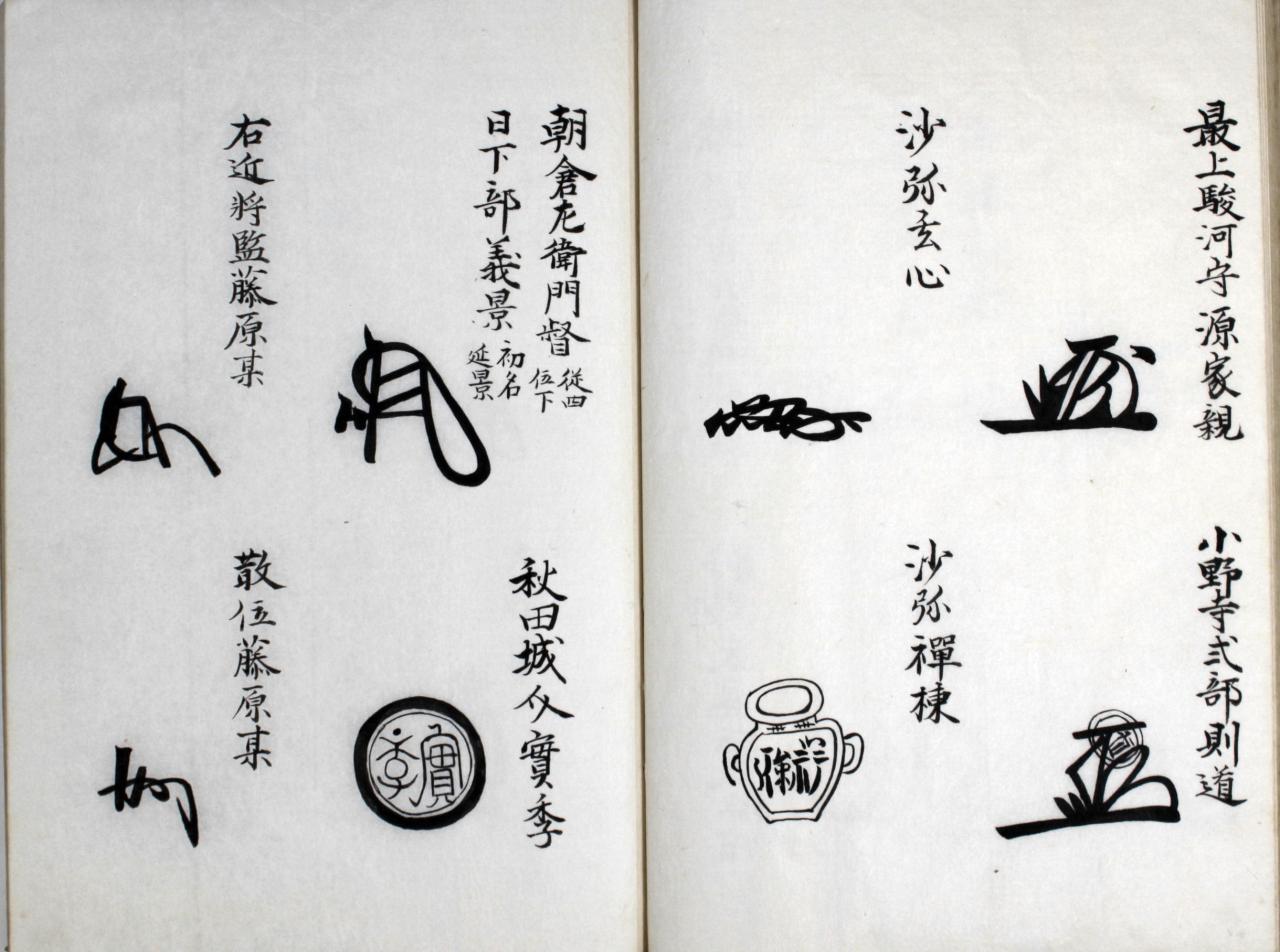 最上駿河守源家親
小野寺式部則道
沙弥玄心
沙弥禪棟
朝倉左衛門督 從四位下
日下部義景 初名延景
秋田城介實季
實季
右近將監藤原某
散位藤原某